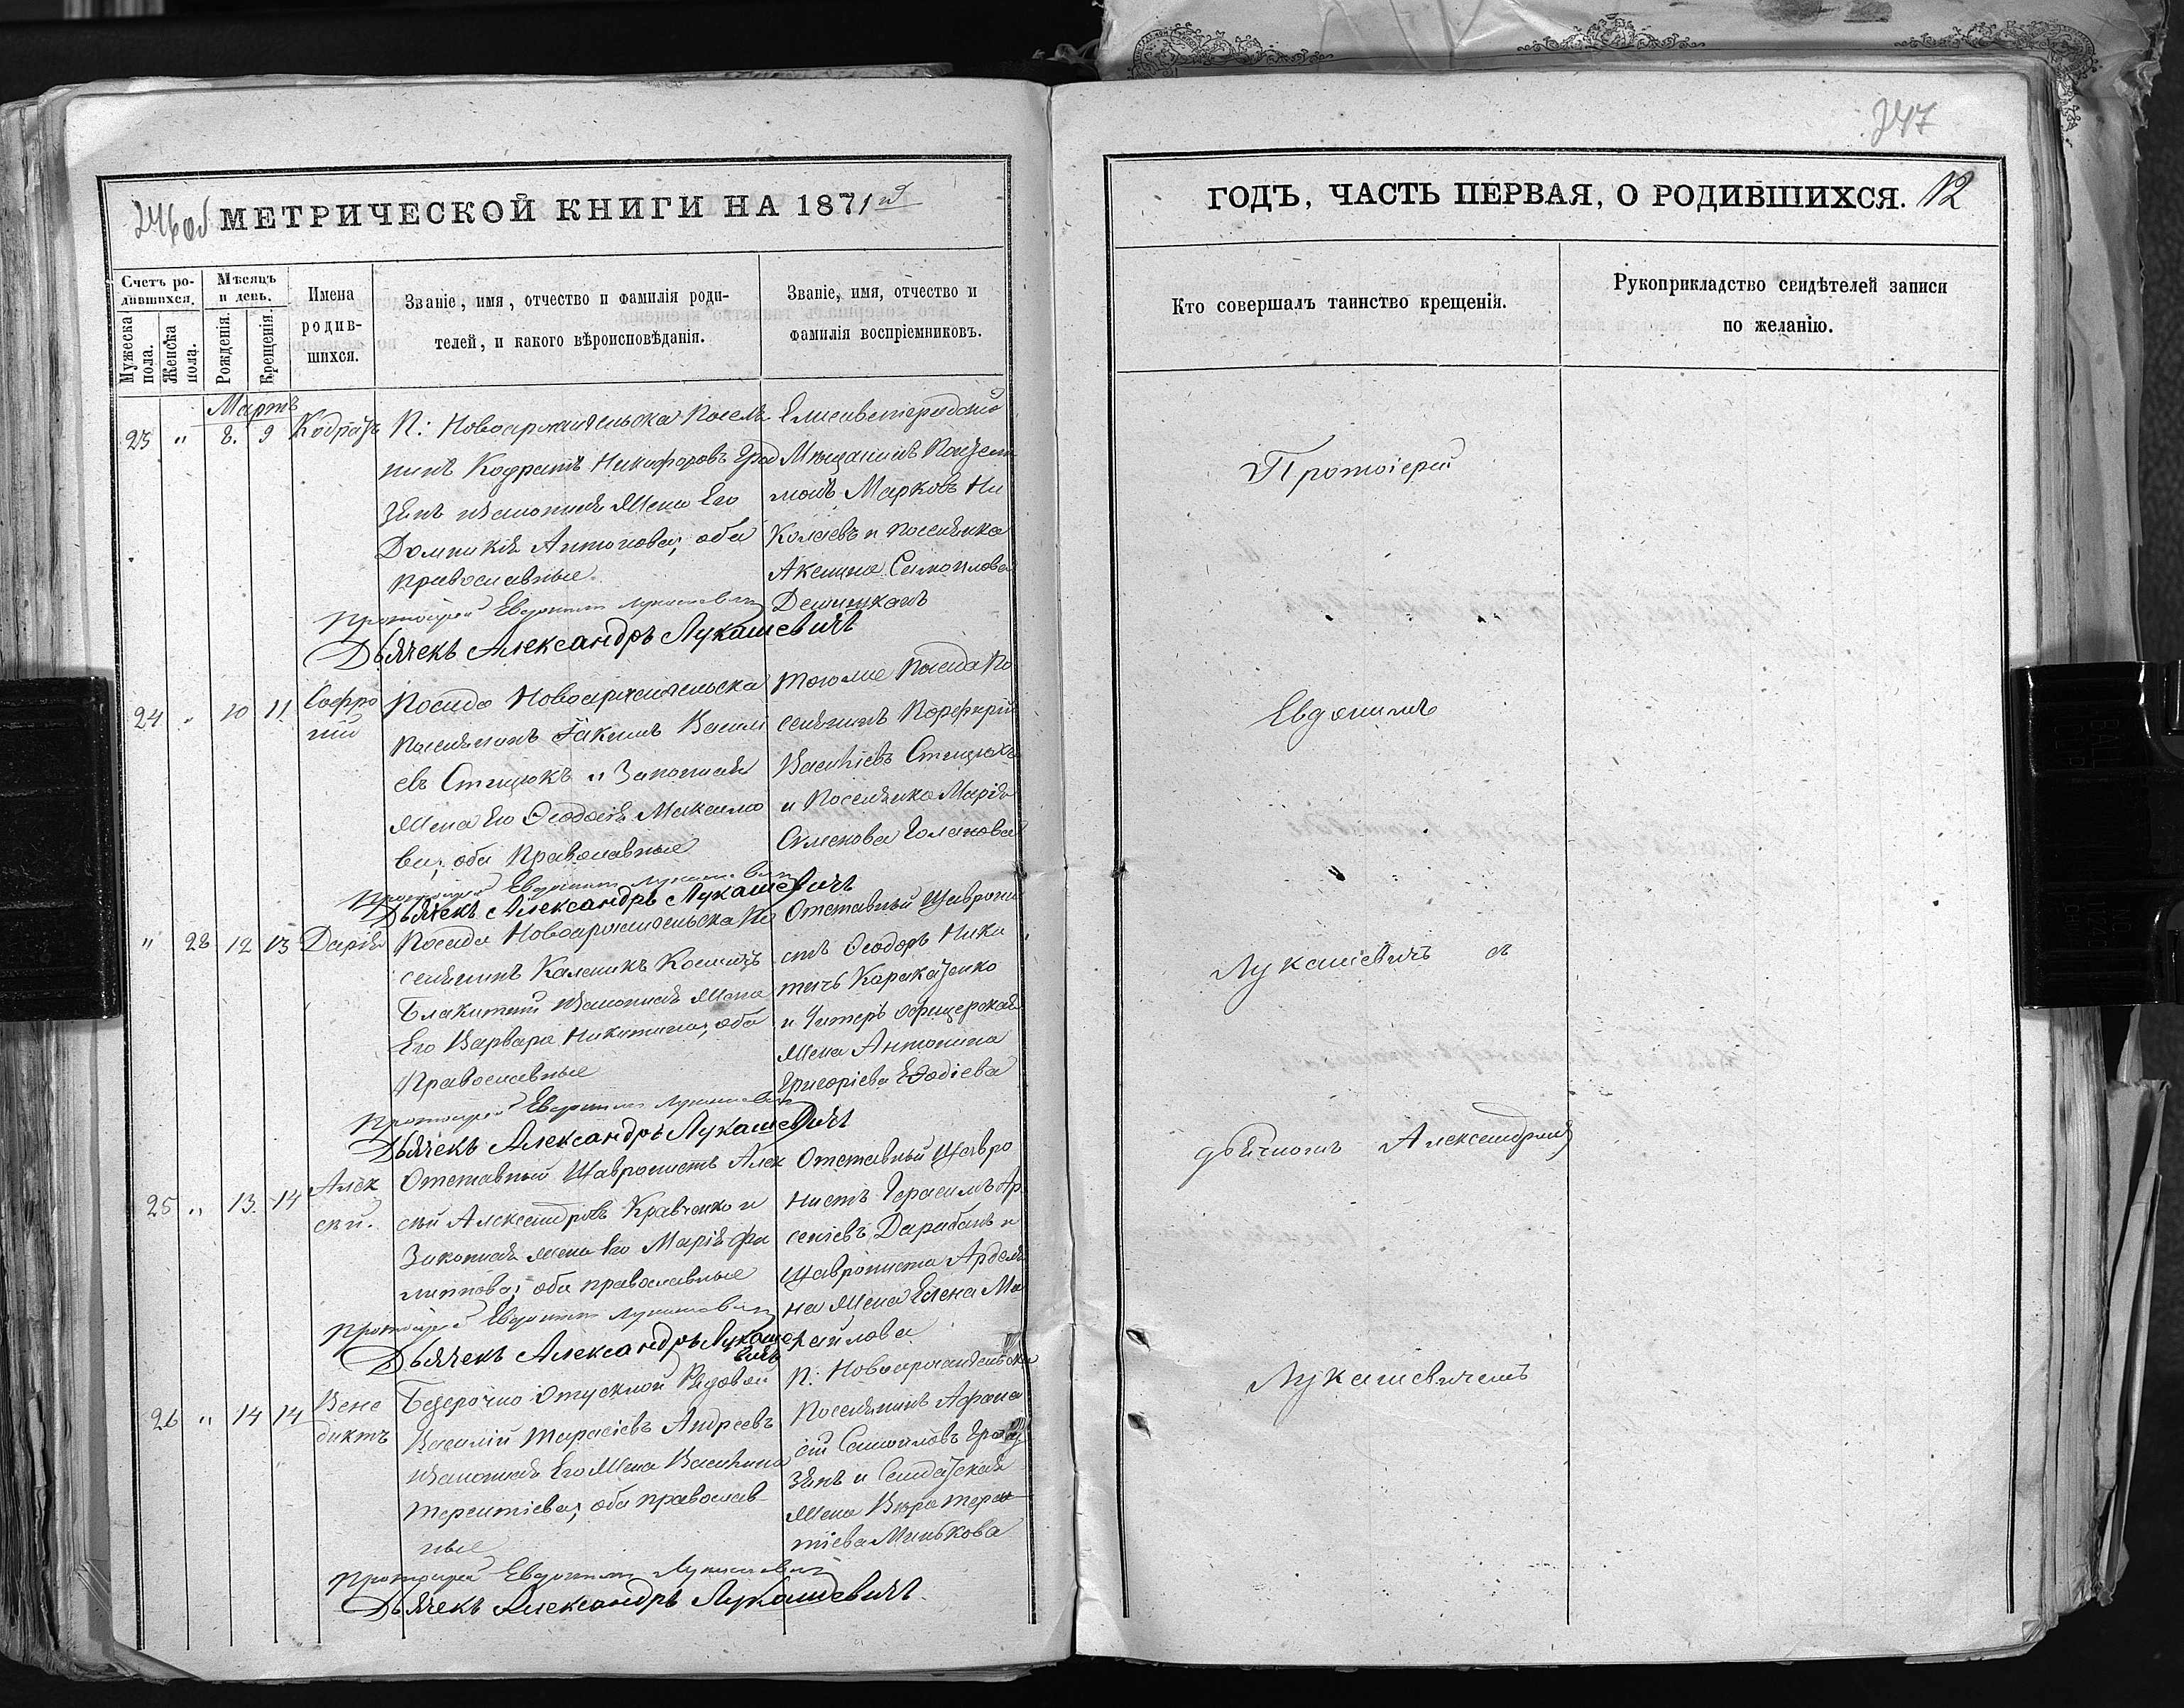 246об МЕТРИЧЕСКОЙ КНИГИ НА 1871 й
Счетъ ро-
дившихся.
Мужеска
пола.
Женска
пола.
Мѣсяцъ
и день.
Рожденія.
Крещенія.
Имена
родив-
шихся.
Званіе, имя, отчество и фамилія роди-
телей, и какого вѣроисповѣданія.
Званіе, имя, отчество и
фамилія воспріемниковъ.
Мартъ
23 " 8. 9 Кодратъ
П: Новоархангельска Поселя
нинъ Кодратъ Никифоровъ Ерад
зенъ Законная Жена Его
Домникія Антонова, оба
православные.
Елисаветградскій
Мещанинъ Пантели
монъ Марковъ Ни
колаевъ и поселянка
Аксинья Самоилова
Протоіерей Евдокимъ Лукашевичъ
Дьячекъ Александръ Лукашевичъ
24 " 10 11 Софро
ній
Посада Новоархангельска
Поселянинъ Іакимъ Васильі
евъ Стецюкъ и Законная
Жена Его Ѳеодосія Максимо
ва, оба Православные
тогоже Посада По
селянинъ Порфирій
Васильевъ Стецюкъ
и Поселянка Марія
Семенова Голакова
Протоіерей Евдокимъ Лукашевичъ
Дьячекъ Александръ Лукашевичъ
" 28 12 13 Дарія
Посада Новоархангельска По
селянинъ Калиникъ Косминъ
Блакитный Законная Жена
Его Варвара Никитина, оба
Православные
Отставный Щаврони
стъ Ѳеодоръ Ники
тичъ Каракаценко
и Унтеръ офицерская
Жена Антонина
Григоріева
Протоіерей Евдокимъ Лукашевичъ
Дьячекъ Александръ Лукашевичъ
25 " 13. 14 Алек
сѣй.
Отставный Щавронистъ Алек
сѣй Александровъ Кравченко и
Законная жена Его Марія Фи
липпова, оба православные
Отставный Щавро
нистъ Герасимъ Ар
сеніевъ Дарабанъ и
Щаврониста Арделя
на Жена Елена Ми
хайлова
Протоіерей Евдокимъ Лукашевичъ
Дьячекъ Александръ Лукаше
вичъ
26 " 14 14 Вене
диктъ
Безсрочно Отпускной Рядовой
Василій Тарасіевъ Андреевъ
Законная Его Жена Васильина
Терентіева, оба православ
ные
П: Новоархангельска
Поселянинъ Афана
сій Самоиловъ Ерад
зенъ и Солдатская
Жена Вѣра Терен
тіева Минькова
Протоіерей Евдокимъ Лукашевичъ
Дьячекъ Александръ Лукашевичъ.
247
ГОДЪ, ЧАСТЬ ПЕРВАЯ, О РОДИВШИХСЯ. 12
Кто совершалъ таинство крещенія.
Рукоприкладство свидѣтелей записи
по желанію.
Протоіерей
Евдокимъ
Лукашевичъ съ
дьячкомъ Александромъ
Лукашевичемъ